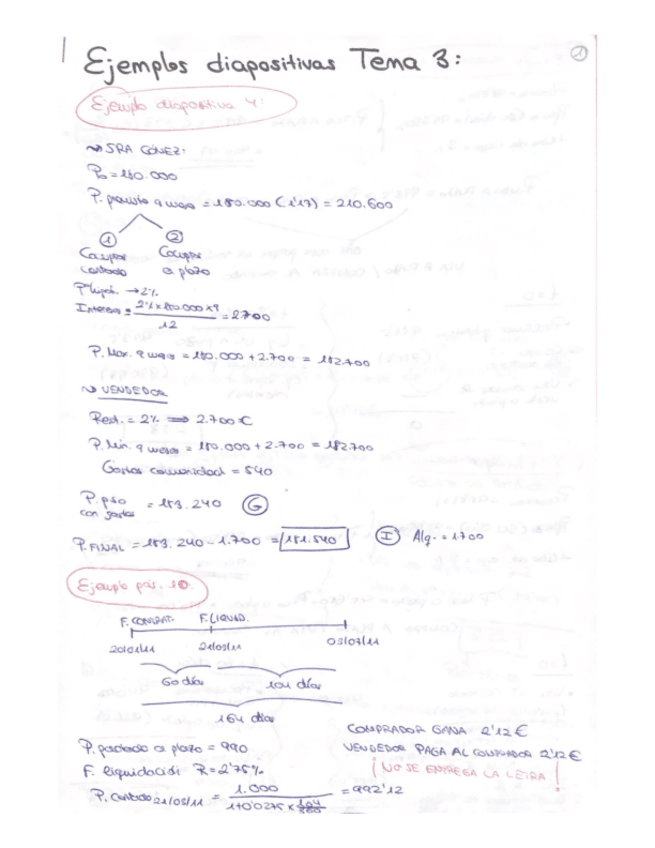 1
Ejemplos diapositivas Tema 3:
Ejemplo diapositiva 4:
→ SRA GÓMEZ:
P₀ = 180.000
P. previsto 9 meses = 180.000 (1'17) = 210.600
① ②
Comprar Comprar
contado a plazo
P. hipot. → 2%
Intereses = 2% x 180.000 x 9 / 12 = 2700
P. Max. 9 meses = 180.000 + 2.700 = 182.700
→ VENDEDOR
Rent. = 2% ⟹ 2.700 €
P. Min. 9 meses = 180.000 + 2.700 = 182.700
Gastos comunidad = 540
P. piso con gastos = 183.240 Ⓖ
P. FINAL = 183.240 - 1.700 = 181.540 Ⓘ Alq. = 1.700
Ejemplo pág. 10.
F. CONTRAT. F. LIQUID.
20/01/11 21/03/11 03/07/11
60 días 104 días
164 días
COMPRADOR GANA 2'12 €
P. pactado a plazo = 990
VENDEDOR PAGA AL COMPRADOR 2'12 €
F. liquidación R = 2'75%
¡NO SE ENTREGA LA LETRA!
P. Contado 21/03/11 = 1.000 / 1+0'0275 x 104/360 = 992'12